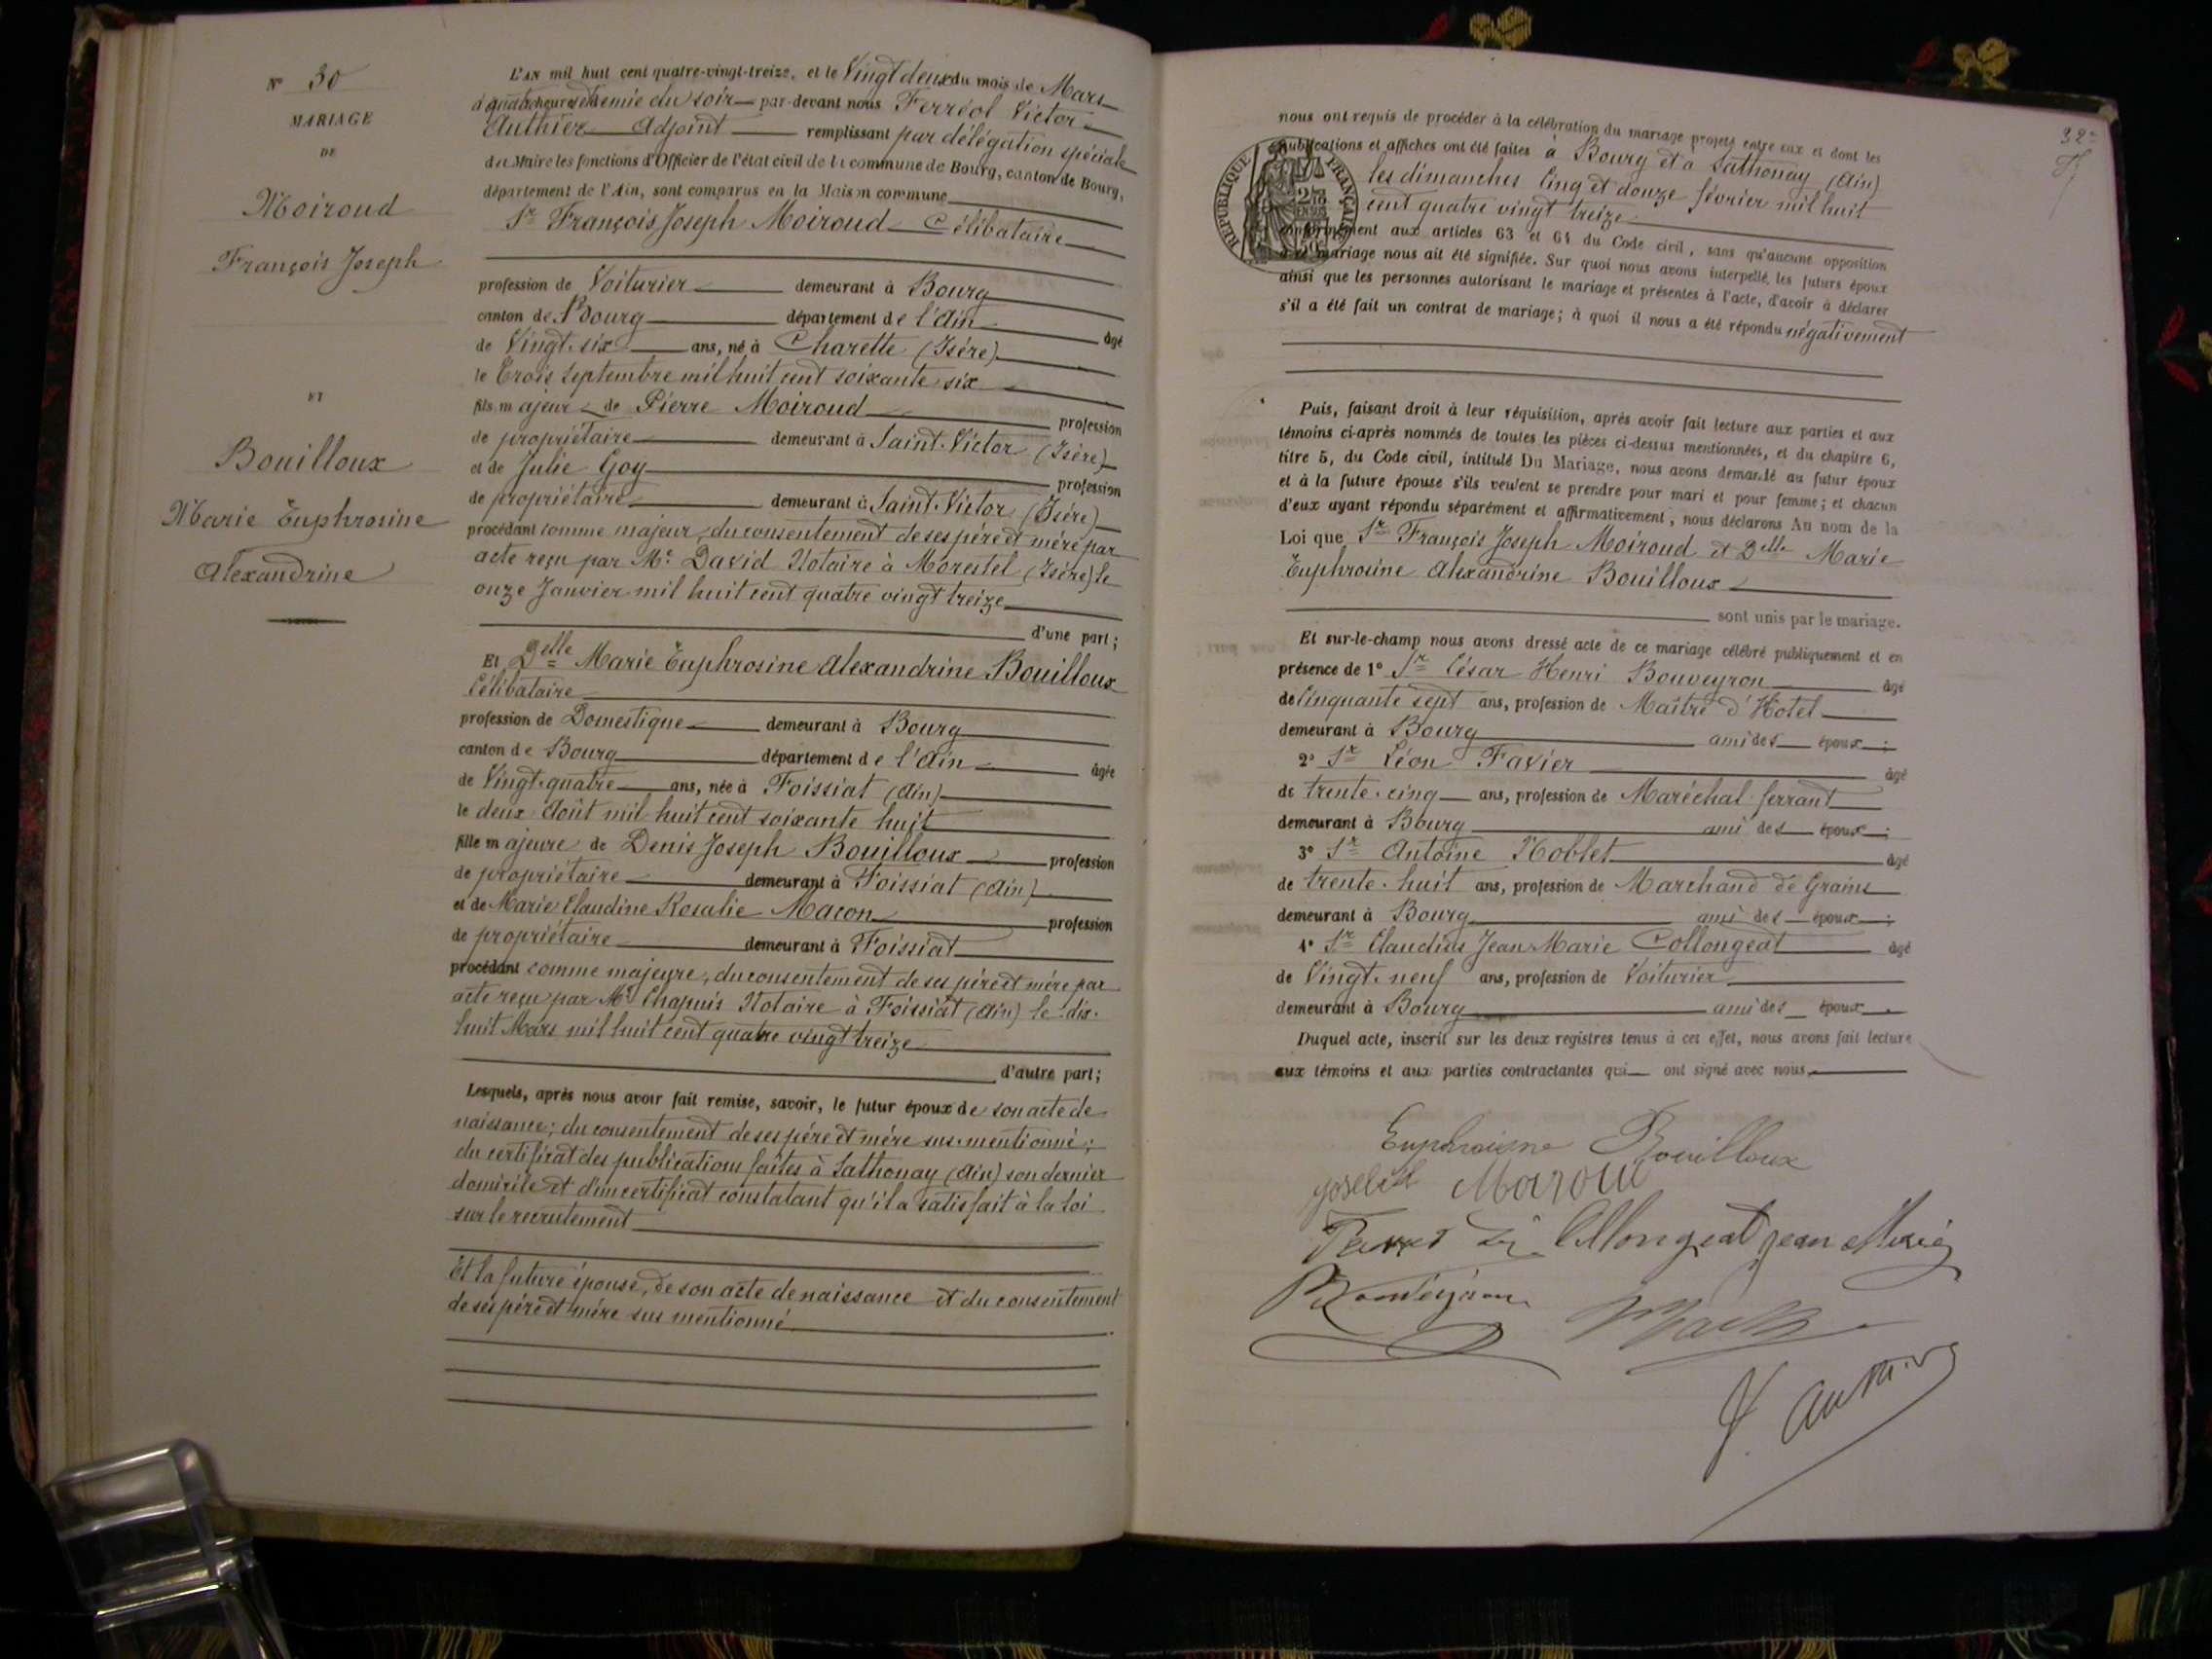 N° 30
MARIAGE
DE
Moiroud
François Joseph
ET
Bouilloux
Marie Euphrosine
Alexandrine
L'AN mil huit cent quatre-vingt-treize, et le Vingt deux du mois de Mars
à quatre heures et demie du soir par-devant nous Ferréol Victor
Authier Adjoint remplissant par délégation spéciale
du Maire les fonctions d'Officier de l'état civil de la commune de Bourg, canton de Bourg,
département de l'Ain, sont comparus en la Maison commune
Sr François Joseph Moiroud Célibataire
profession de Voiturier demeurant à Bourg
canton de Bourg département de l'Ain âgé
de Vingt-six ans, né à Charette (Isére)
le Trois Septembre mil huit cent soixante six
fils majeur de Pierre Moiroud profession
de propriétaire demeurant à Saint-Victor (Isère)
et de Julie Goy profession
de propriétaire demeurant à Saint-Victor (Isére)
procédant comme majeur, du consentement de ses père et mére par
acte reçu par Me David Notaire à Morestel (Isère) le
onze Janvier mil huit cent quatre vingt treize
d'une part;
Et Delle Marie Euphrosine Alexandrine Bouilloux
Célibataire
profession de Domestique demeurant à Bourg
canton de Bourg département de l'Ain âgée
de Vingt-quatre ans, née à Foissiat (Ain)
le deux Août mil huit cent soixante huit
fille majeure de Denis Joseph Bouilloux profession
de propriétaire demeurant à Foissiat (Ain)
et de Marie Claudine Rosalie Macon profession
de propriétaire demeurant à Foissiat
procédant comme majeure, du consentement de ses pére et mére par
acte reçu par Me Chapuis Notaire à Foissiat (Ain) le dix-
huit Mars mil huit cent quatre vingt treize
d'autre part;
Lesquels, après nous avoir fait remise, savoir, le futur époux de son acte de
naissance; du consentement de ses pére et mére sus-mentionné;
du certificat des publications faites à Sathonay (Ain) son dernier
domicile et d'un certificat constatant qu'il a satisfait à la loi
sur le recrutement
Et la future épouse, de son acte de naissance et du consentement
de ses pére et mére sus mentionné
32e
nous ont requis de procéder à la célébration du mariage projeté entre eux et dont les
publications et affiches ont été faites à Bourg et à Sathonay (Ain)
les dimanches Cinq et douze février mil huit
cent quatre vingt treize
RÉPUBLIQUE FRANÇAISE
conformément aux articles 63 et 64 du Code civil, sans qu'aucune opposition
à ce mariage nous ait été signifiée. Sur quoi nous avons interpellé les futurs époux
ainsi que les personnes autorisant le mariage et présentes à l'acte, d'avoir à déclarer
s'il a été fait un contrat de mariage; à quoi il nous a été répondu négativement
Puis, faisant droit à leur réquisition, après avoir fait lecture aux parties et aux
témoins ci-après nommés de toutes les pièces ci-dessus mentionnées, et du chapitre 6,
titre 5, du Code civil, intitulé Du Mariage, nous avons demandé au futur époux
et à la future épouse s'ils veulent se prendre pour mari et pour femme; et chacun
d'eux ayant répondu séparément et affirmativement, nous déclarons Au nom de la
Loi que Sr François Joseph Moiroud et Delle Marie
Euphrosine Alexandrine Bouilloux
sont unis par le mariage.
Et sur-le-champ nous avons dressé acte de ce mariage célébré publiquement et en
présence de 1° Sr César Henri Bouveyron âgé
de Cinquante sept ans, profession de Maître d'Hôtel
demeurant à Bourg ami des époux;
2° Sr Léon Favier âgé
de trente-cinq ans, profession de Maréchal-ferrant
demeurant à Bourg ami des époux;
3° Sr Antoine Noblet âgé
de trente-huit ans, profession de Marchand de Grains
demeurant à Bourg ami des époux;
4° Sr Claudius Jean Marie Collongeat âgé
de Vingt-neuf ans, profession de Voiturier
demeurant à Bourg ami des époux.
Duquel acte, inscrit sur les deux registres tenus à cet effet, nous avons fait lecture
aux témoins et aux parties contractantes qui ont signé avec nous.
Bouilloux
Collongeat jean Marie